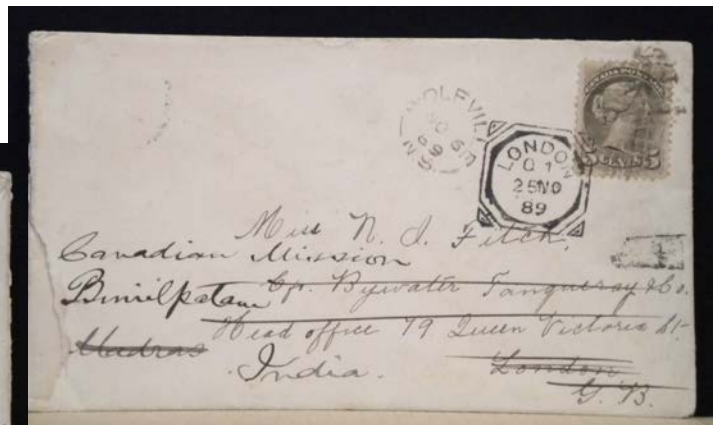 WOLFVIL
N.S.
LONDON
Q 1
25 NO
89
5 CENTS 5
Miss N. J. Fitch,
Canadian Mission
Bimilpatam
Bywater Tanqueray & Co.
Head office 79 Queen Victoria St.
Madras
London
India.
G. B.